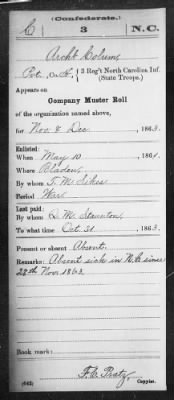 (Confederate.)
C 3 N.C.
Archd Colum
Pvt., Co. H, 3 Reg't North Carolina Inf.
(State Troops.)
Appears on
Company Muster Roll
of the organization named above,
for Nov & Dec, 1863.
Enlisted:
When May 10, 1861.
Where Bladen
By whom T. M. Sikes
Period War
Last paid:
By whom D. M.
To what time Oct 31, 1863.
Present or absent Absent.
Remarks: Absent sick in N.C. since
28th Nov. 1863.
Book mark:
(642)
Copyist.